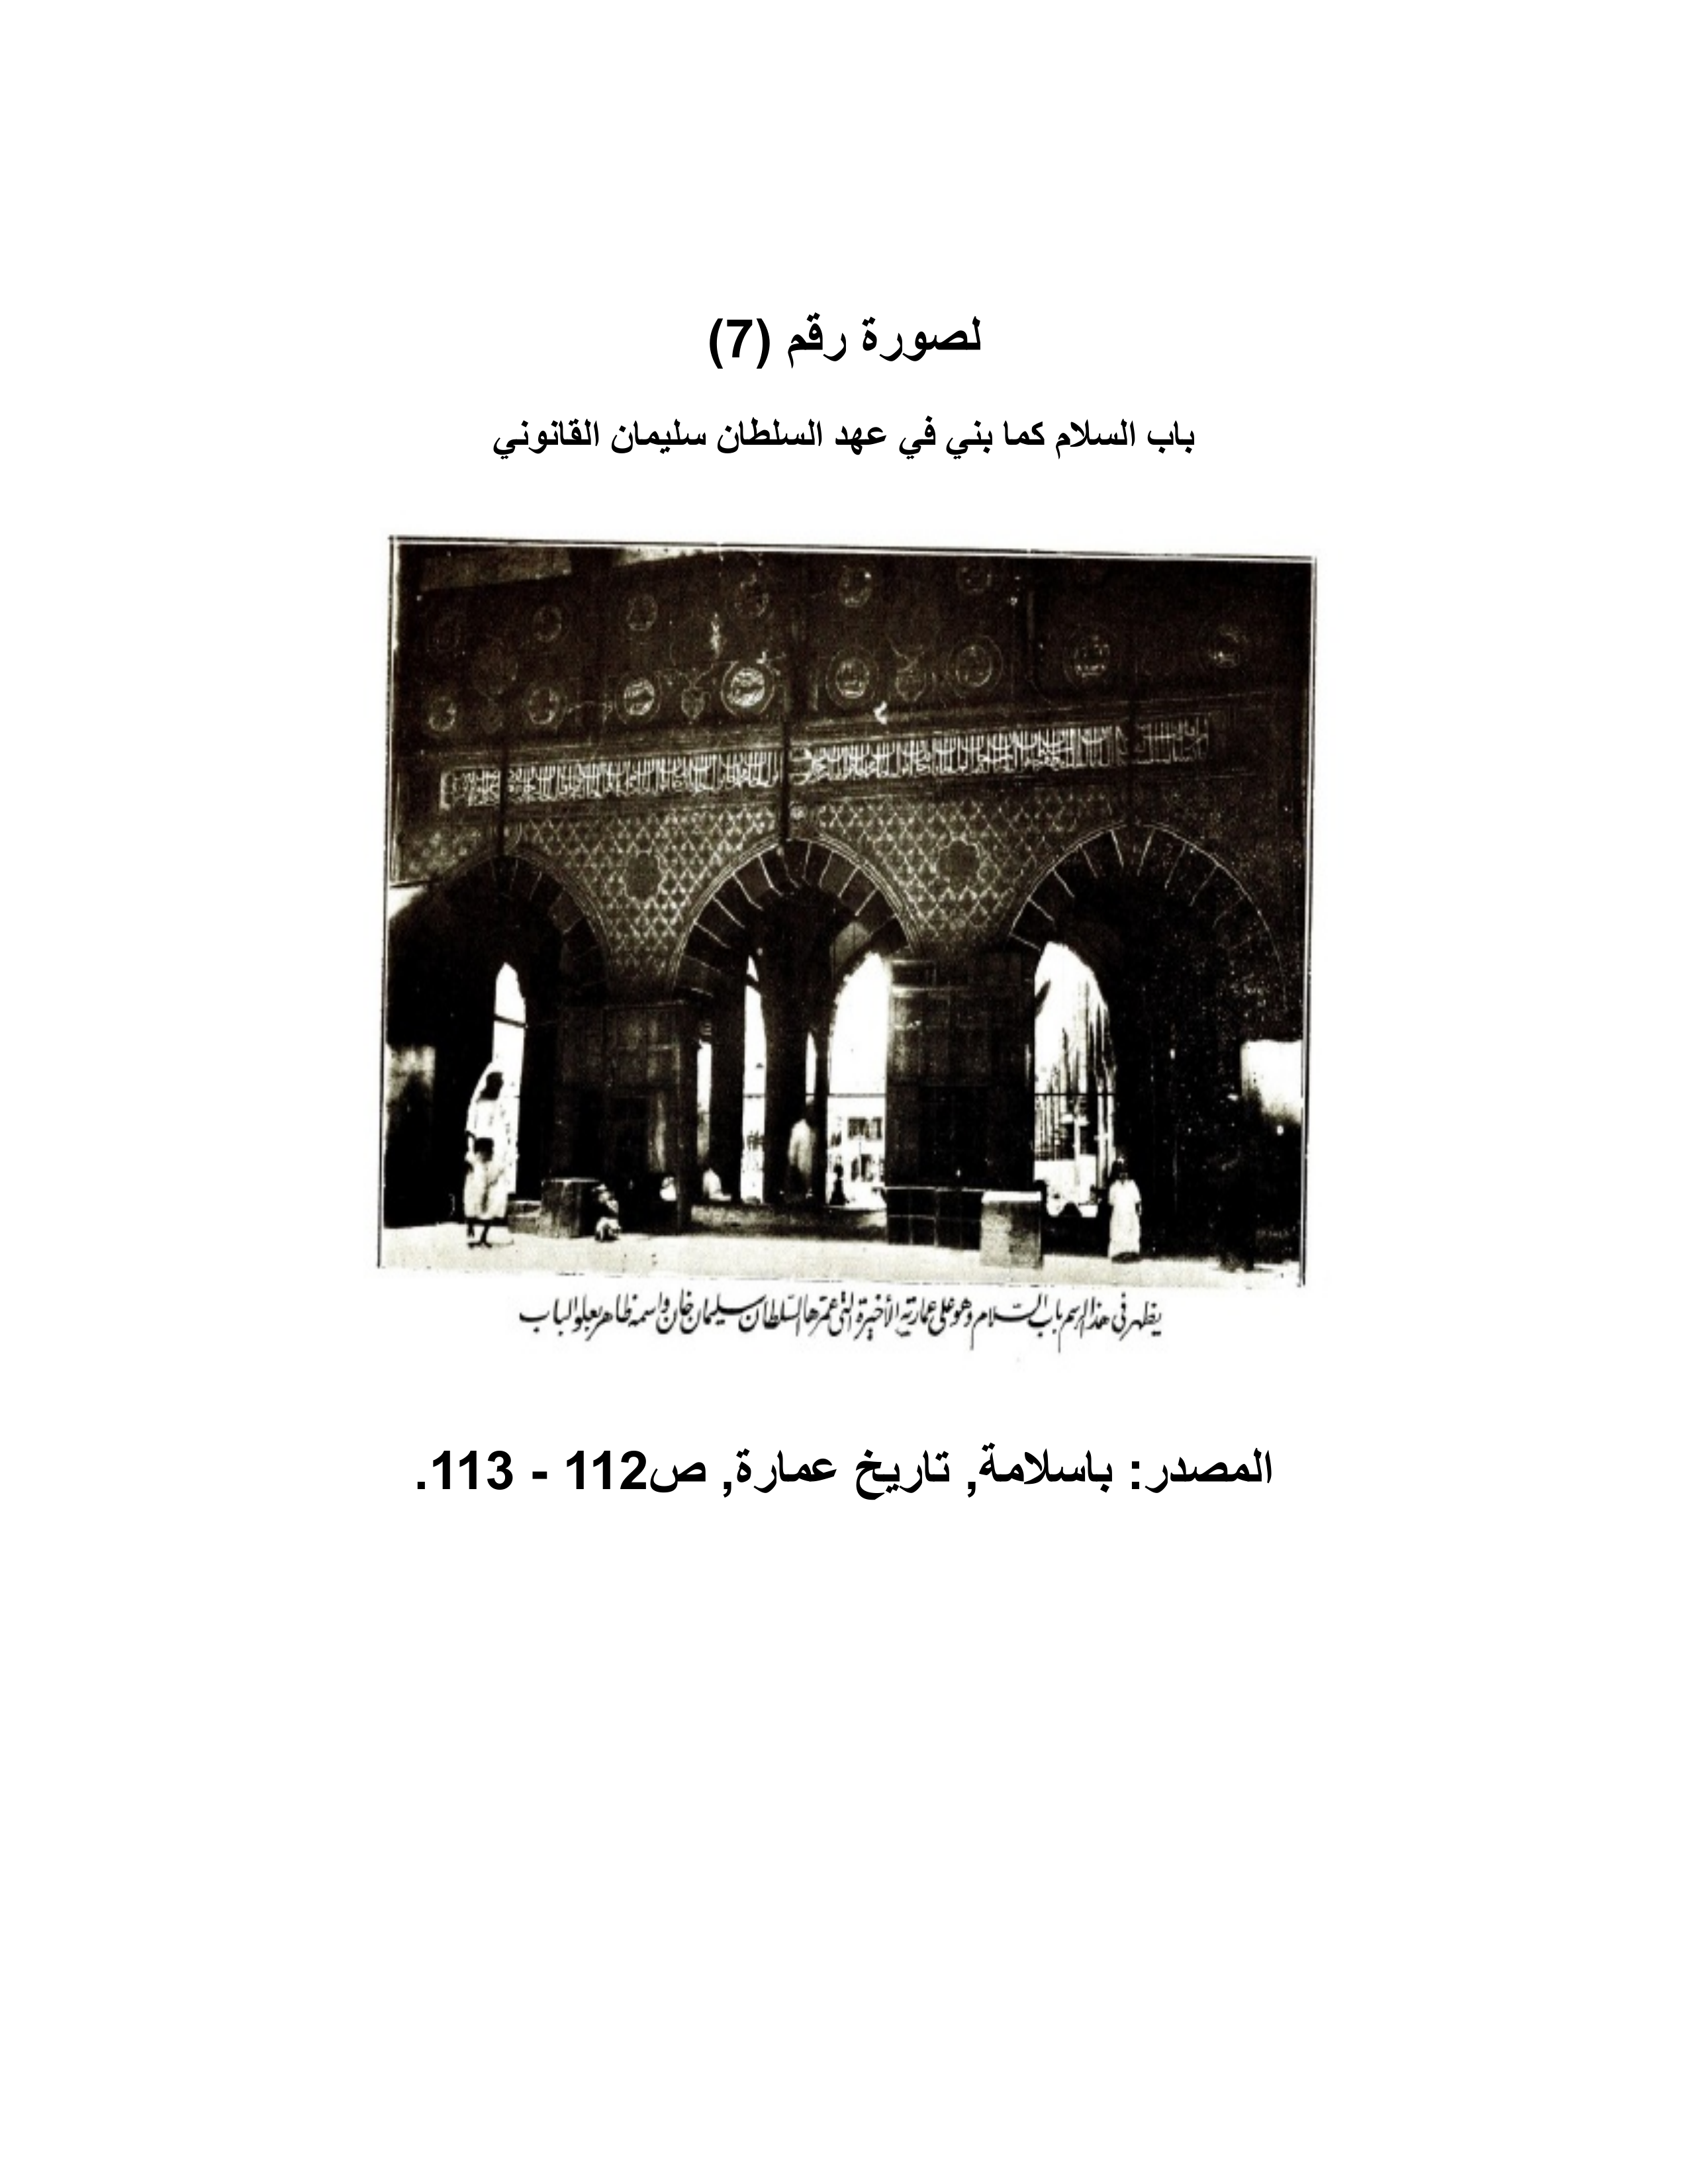 لصورة رقم (7)
باب السلام كما بني في عهد السلطان سليمان القانوني
يظهر في هذا الرسم باب السلام وهو على عمارته الأخيرة التي عمرها السلطان سليمان خان واسمه ظاهر بعلو الباب
المصدر: باسلامة, تاريخ عمارة, ص112 - 113.